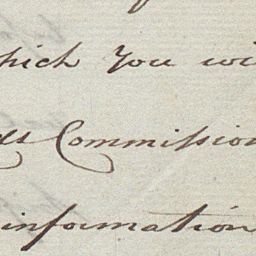 which you wi
Commission
information